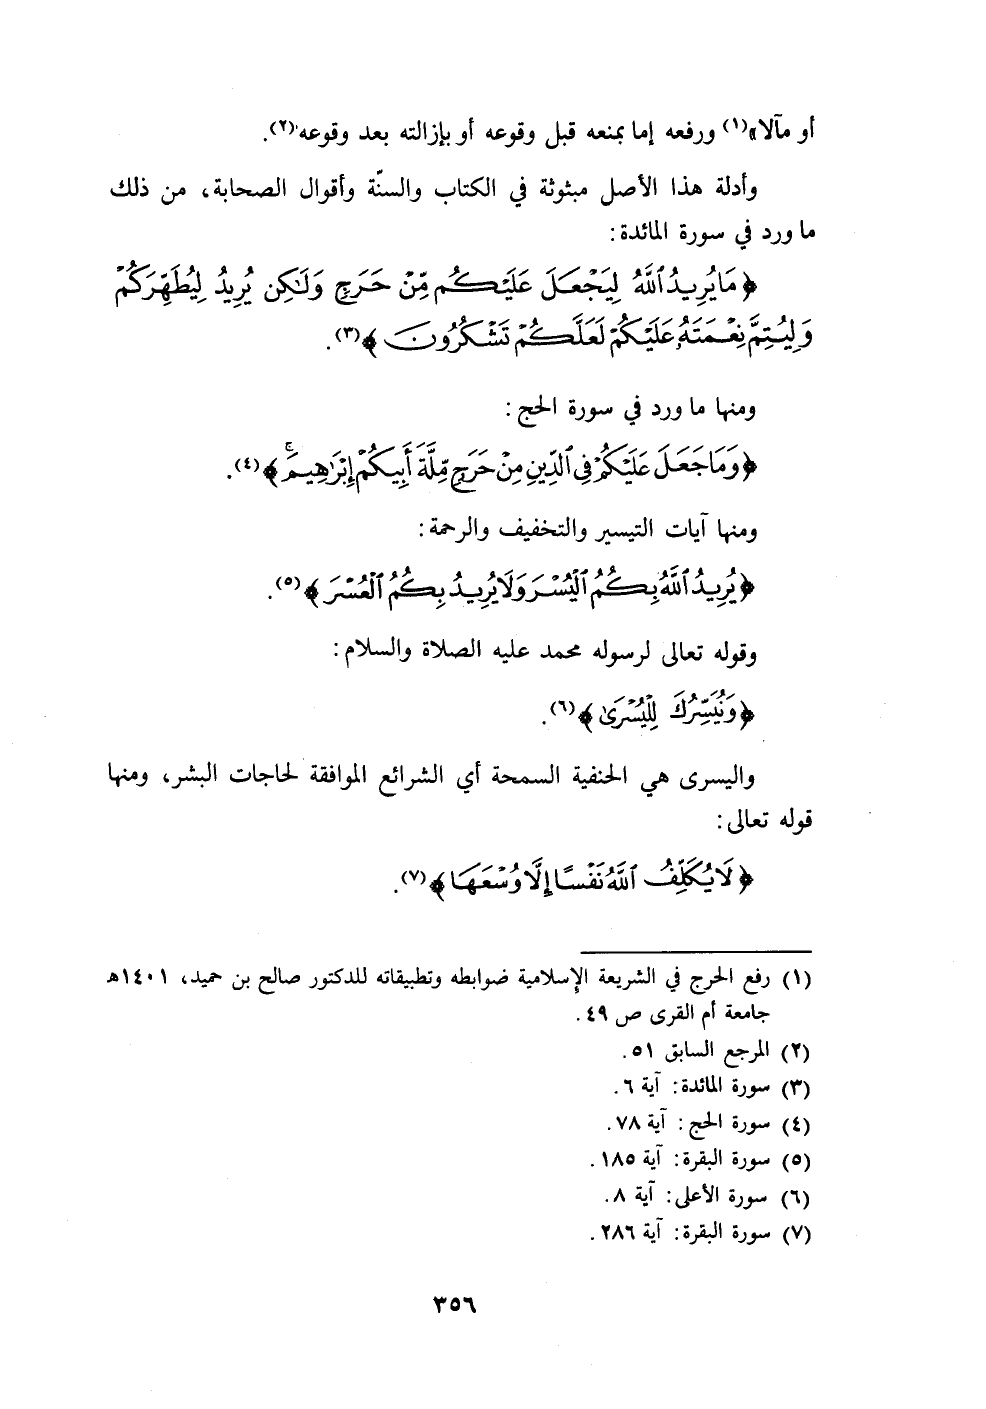 أو مآلا»(١) ورفعه إما بمنعه قبل وقوعه أو بإزالته بعد وقوعه(٢).
وأدلة هذا الأصل مبثوثة في الكتاب والسنّة وأقوال الصحابة، من ذلك
ما ورد في سورة المائدة:
﴿مَا يُرِيدُ ٱللَّهُ لِيَجْعَلَ عَلَيْكُم مِّنْ حَرَجٍ وَلَٰكِن يُرِيدُ لِيُطَهِّرَكُمْ
وَلِيُتِمَّ نِعْمَتَهُۥ عَلَيْكُمْ لَعَلَّكُمْ تَشْكُرُونَ﴾(٣).
ومنها ما ورد في سورة الحج:
﴿وَمَا جَعَلَ عَلَيْكُمْ فِي ٱلدِّينِ مِنْ حَرَجٍ مِّلَّةَ أَبِيكُمْ إِبْرَٰهِيمَ ۚ﴾(٤).
ومنها آيات التيسير والتخفيف والرحمة:
﴿يُرِيدُ ٱللَّهُ بِكُمُ ٱلْيُسْرَ وَلَا يُرِيدُ بِكُمُ ٱلْعُسْرَ﴾(٥).
وقوله تعالى لرسوله محمد عليه الصلاة والسلام:
﴿وَنُيَسِّرُكَ لِلْيُسْرَىٰ﴾(٦).
واليسرى هي الحنفية السمحة أي الشرائع الموافقة لحاجات البشر، ومنها
قوله تعالى:
﴿لَا يُكَلِّفُ ٱللَّهُ نَفْسًا إِلَّا وُسْعَهَا﴾(٧).
(١) رفع الحرج في الشريعة الإسلامية ضوابطه وتطبيقاته للدكتور صالح بن حميد، ١٤٠١هـ
جامعة أم القرى ص ٤٩.
(٢) المرجع السابق ٥١.
(٣) سورة المائدة: آية ٦.
(٤) سورة الحج: آية ٧٨.
(٥) سورة البقرة: آية ١٨٥.
(٦) سورة الأعلى: آية ٨.
(٧) سورة البقرة: آية ٢٨٦.
٣٥٦